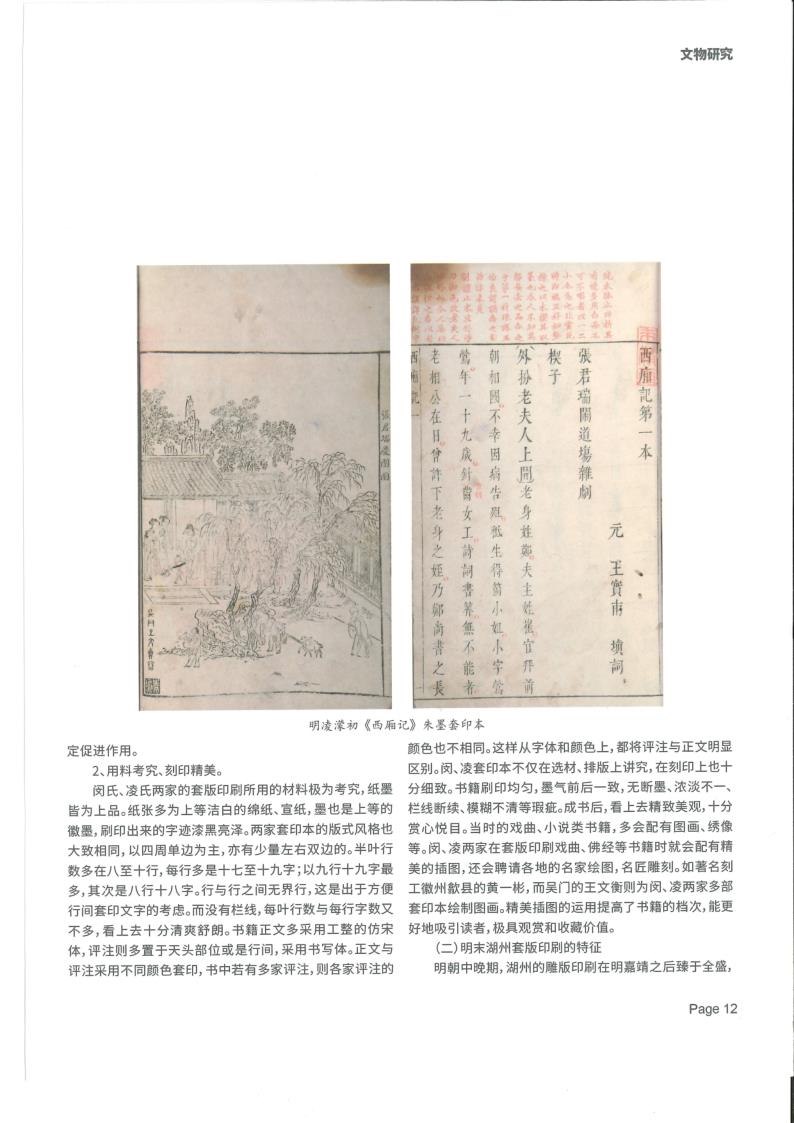 文物研究
張君瑞慶團圓
西廂記第一本
元 王實甫 填詞
張君瑞鬧道場雜劇
楔子
外扮老夫人上開老身姓鄭夫主姓崔官拜前
朝相國不幸因病告殂祗生得箇小姐小字鶯
鶯年一十九歲針黹女工詩詞書算無不能者
老相公在日曾許下老身之姪乃鄭尚書之長
西廂記一
明凌濛初《西厢记》朱墨套印本
定促进作用。
2、用料考究、刻印精美。
闵氏、凌氏两家的套版印刷所用的材料极为考究，纸墨
皆为上品。纸张多为上等洁白的绵纸、宣纸，墨也是上等的
徽墨，刷印出来的字迹漆黑亮泽。两家套印本的版式风格也
大致相同，以四周单边为主，亦有少量左右双边的。半叶行
数多在八至十行，每行多是十七至十九字；以九行十九字最
多，其次是八行十八字。行与行之间无界行，这是出于方便
行间套印文字的考虑。而没有栏线，每叶行数与每行字数又
不多，看上去十分清爽舒朗。书籍正文多采用工整的仿宋
体，评注则多置于天头部位或是行间，采用书写体。正文与
评注采用不同颜色套印，书中若有多家评注，则各家评注的
颜色也不相同。这样从字体和颜色上，都将评注与正文明显
区别。闵、凌套印本不仅在选材、排版上讲究，在刻印上也十
分细致。书籍刷印均匀，墨气前后一致，无断墨、浓淡不一、
栏线断续、模糊不清等瑕疵。成书后，看上去精致美观，十分
赏心悦目。当时的戏曲、小说类书籍，多会配有图画、绣像
等。闵、凌两家在套版印刷戏曲、佛经等书籍时就会配有精
美的插图，还会聘请各地的名家绘图，名匠雕刻。如著名刻
工徽州歙县的黄一彬，而吴门的王文衡则为闵、凌两家多部
套印本绘制图画。精美插图的运用提高了书籍的档次，能更
好地吸引读者，极具观赏和收藏价值。
（二）明末湖州套版印刷的特征
明朝中晚期，湖州的雕版印刷在明嘉靖之后臻于全盛，
Page 12